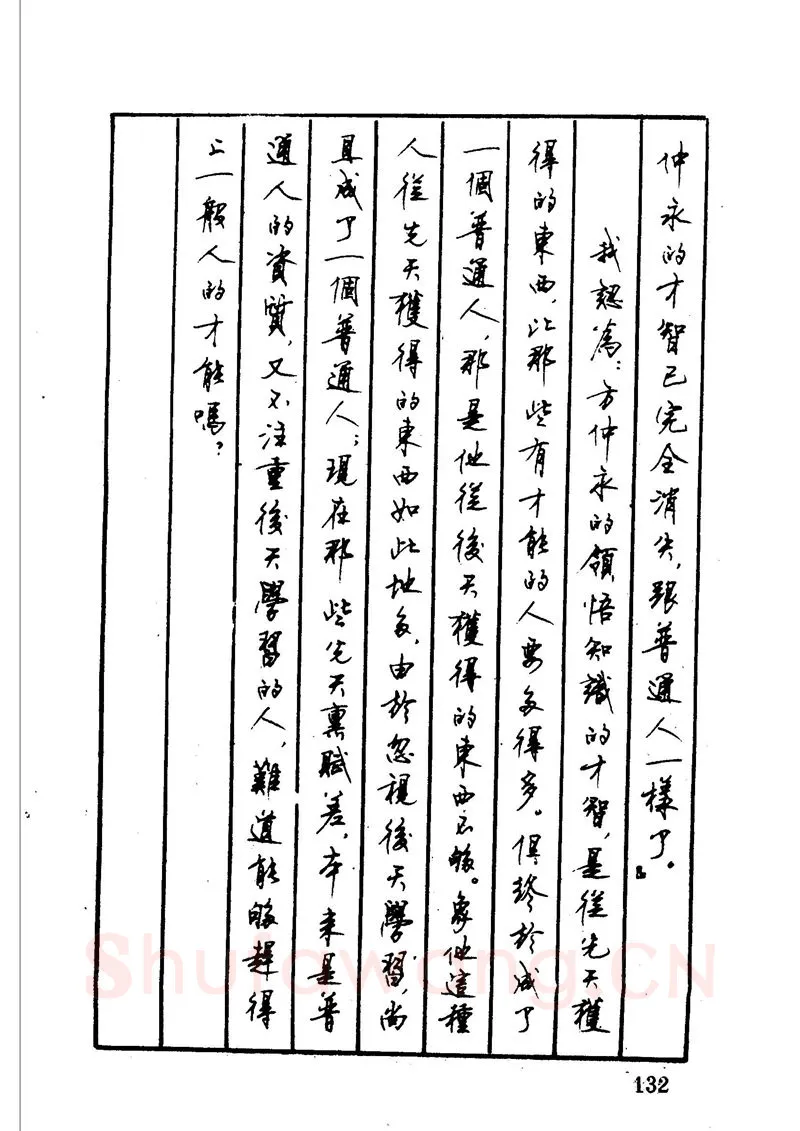 仲永的才智已完全消失，跟普通人一樣了。』
我認為：方仲永的領悟知識的才智，是從先天獲
得的東西，比那些有才能的人要多得多。但終於成了
一個普通人，那是他從後天獲得的東西不够。象他這種
人從先天獲得的東西如此地多，由於忽視後天學習，尚
且成了一個普通人；現在那些先天稟賦差，本來是普
通人的資質，又不注重後天學習的人，難道能够趕得
上一般人的才能嗎？
132
Shufawang.CN